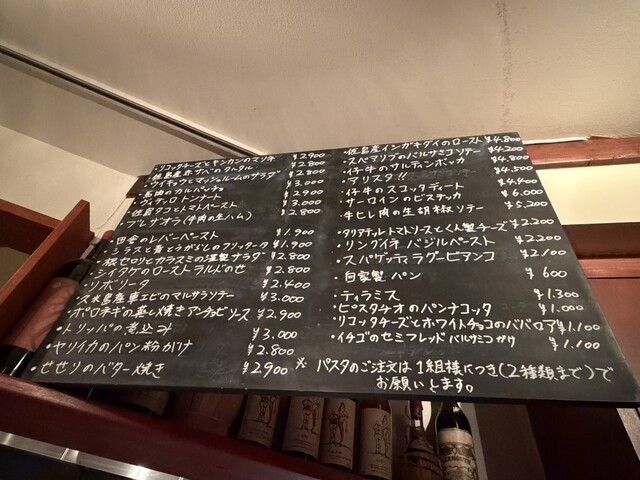 リコッタチーズとキンカンのマリネ ¥2.900
佐島産 ¥2.800
ケイチョウとマッシュルームのサラダ ¥3.000
大名肉のカルパッチョ ¥2.900
ヴィテッロトンナート ¥3.000
佐島タコとトマトペースト ¥2.800
ブレサオラ(牛肉の生ハム)
田舎のレバーペースト ¥1.900
シラスと青とうがらしのフリッタータ ¥1.900
根セロリとカラスミの漢製サラダ ¥2.800
シイタケのロースト ラルドのせ ¥2.800
リボリータ ¥2.400
久米島産車エビのマルサラソテー ¥3.000
ポロネギの蒸し焼きアンチョビソース ¥2.900
・トリッパの煮込み ¥3.000
・ヤリイカのパン粉がけ ¥2.800
・せせりのバター焼き ¥2900
佐島産インガキダイのロースト ¥4.800
・スペアリブのバルサミコソテー ¥4.200
・仔牛のサルティンボッカ ¥4.800
・アリスタ!! ¥4.500
・仔牛のスコッタディート ¥4.400
・サーロインのビステッカ ¥6.000
・牛ヒレ肉の生胡椒ソテー ¥5.200
・タリアテッレトマトソースとくん製チーズ ¥2.200
・リングイネ バジルペースト ¥2200
・スパゲッティラグービアンコ ¥2.100
・自家製パン ¥600
・ティラミス ¥1.300
・ピスタチオのパンナコッタ ¥1.000
・リコッタチーズとホワイトチョコのババロア ¥1.100
・イチゴのセミフレッド バルサミコがけ ¥1.100
※ パスタのご注文は1組様につき(2種類まで)で
お願いします。